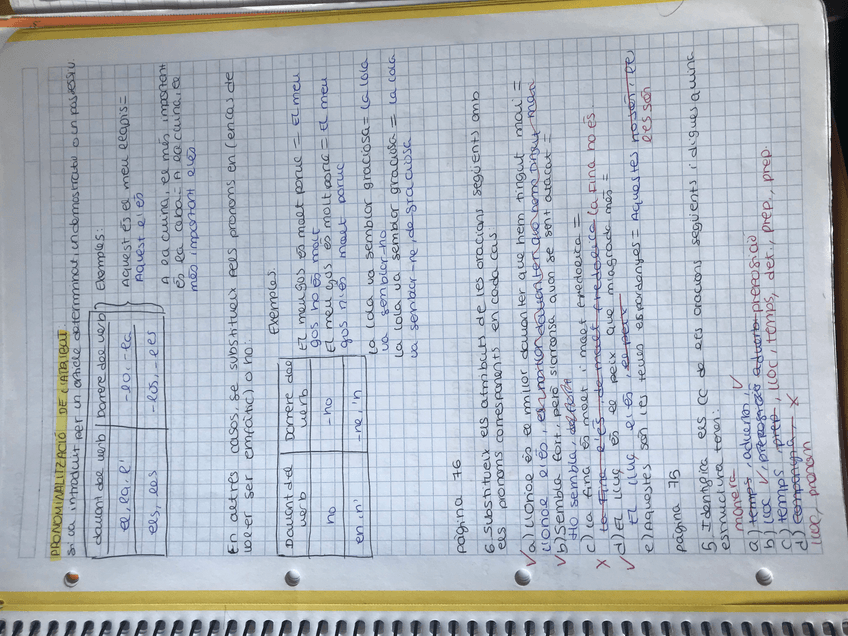 PRONOMINALITZACIÓ DE L'ATRIBUT
Si va introduït per un article determinat, un demostratiu o un possessiu
davant del verb
Darrere del verb
el, la, l'
-lo, -la
els, les
-los, -les
Exemples:
Aquest és el meu llapis =
Aquest el és
A la cuina, el més important
és la ceba: A la cuina, el
més important el és
En altres casos, se substitueix pels pronoms en (en cas de
voler ser emfàtic) o ho:
Davant del
verb
Darrere del
verb
ho
-ho
en-n'
-ne, 'n
Exemples:
El meu gos és molt poruc = El meu
gos ho és molt
El meu gos és molt poruc = El meu
gos n'és molt poruc
La Lola va semblar graciosa = La Lola
va semblar-ho
La Lola va semblar graciosa = La Lola
va semblar-ne, de graciosa
pàgina 76
6. Substitueix els atributs de les oracions següents amb
els pronoms corresponents en cada cas
a) L'onze és el millor davanter que hem tingut mai =
L'onze el és, el millor davanter que hem tingut mai
b) Sembla fort, però s'arronsa quan se sent atacat =
Ho sembla, de fort
c) La Fina és molt i molt Fredolica =
La Fina el és, de molt fredolica La Fina ho és
d) El lluç és el peix que m'agrada més =
El lluç el és, el peix
e) Aquestes són les teves espardenyes = Aquestes ho són, les
les són
pàgina 75
5. Identifica els CC de les oracions següents i digues quina
estructura tenen:
manera
a) temps, adverbi, preposició
b) lloc, preposició adverbi
c) temps prep, lloc, temps, det., prep., prep
d) companyia
lloc, pronom